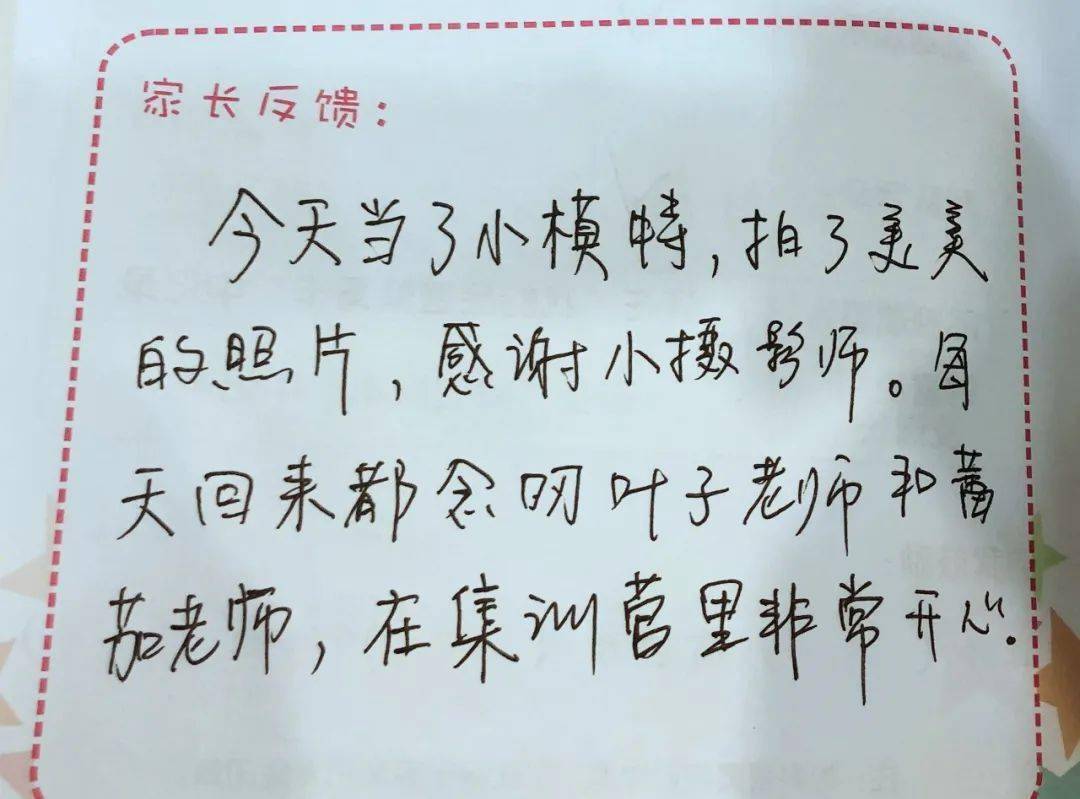 家长反馈：
今天当了小模特，拍了美美
的照片，感谢小摄影师。每
天回来都念叨叶子老师和蕃
茄老师，在集训营里非常开心。